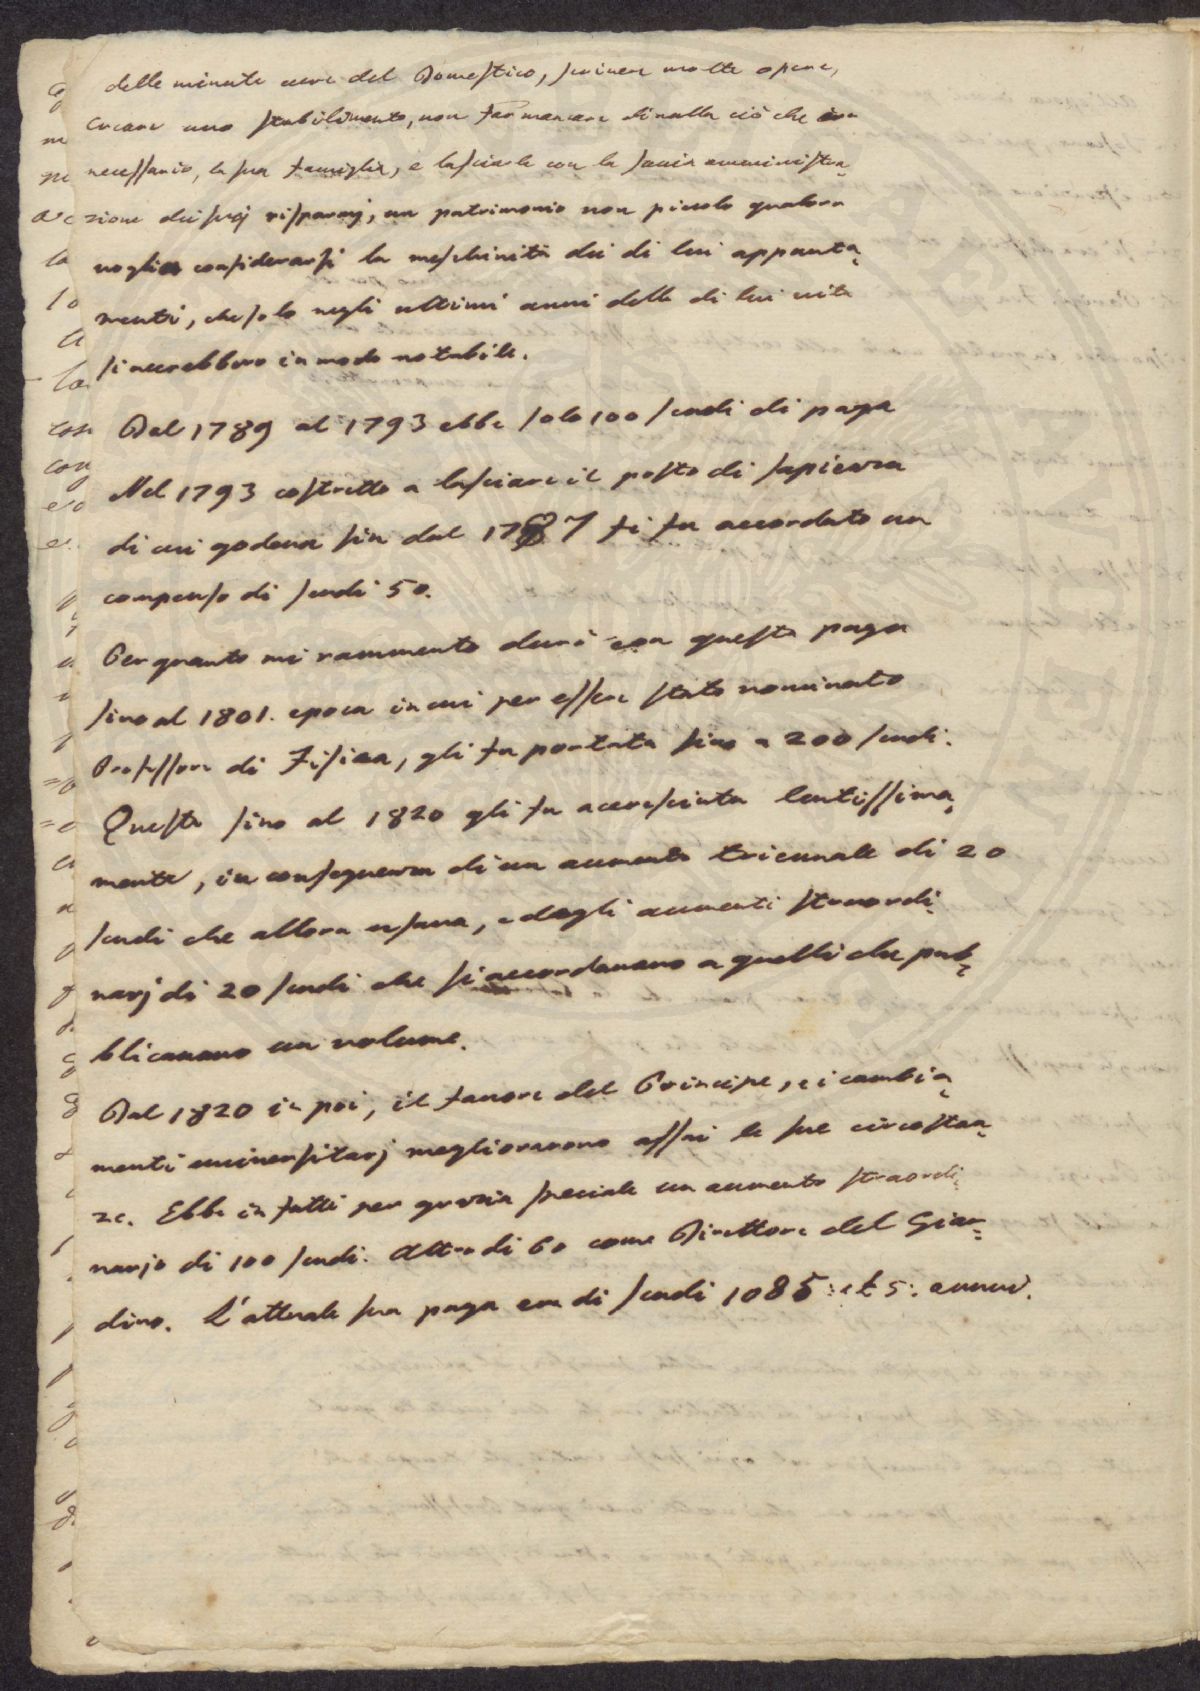 delle minute cure del Domestico, scrivere molte opere,
creare uno stabilimento, non far mancare di nulla ciò che era
necessario, la sua famiglia, e lasciarle con la savia amministra=
zione dei suoi risparmj, un patrimonio non piccolo qualora
voglia considerarsi la meschinità dei di lui appunta=
menti, che solo negli ultimi anni della di lui vita
si accrebbero in modo notabile.
Dal 1789 al 1793 ebbe solo 100 scudi di paga
Nel 1793 costretto a lasciare il posto di sapienza
di cui godeva sin dal 1787 fi fu accordato un
compenso di scudi 50.
Per quanto mi rammento durò con questa paga
sino al 1801. epoca in cui per essere stato nominato
Professore di Fisica, gli fu portata sino a 200 scudi.
Questa sino al 1820 gli fu accresciuta lentissima=
mente, in conseguenza di un aumento triennale di 20
scudi che allora usava, e degli aumenti straordi=
narj di 20 scudi che si accordavano a quelli che pub=
blicavano un volume.
Dal 1820 in poi, il favore del Principe, e i cambia=
menti universitarj migliorarono assai le sue circostan=
ze. Ebbe in fatti per grazia speciale un aumento straordi=
nario di 100 scudi. Altro di 60 come Direttore del Giar=
dino. L'attuale sua paga era di scudi 1085: e £ 5: annui.